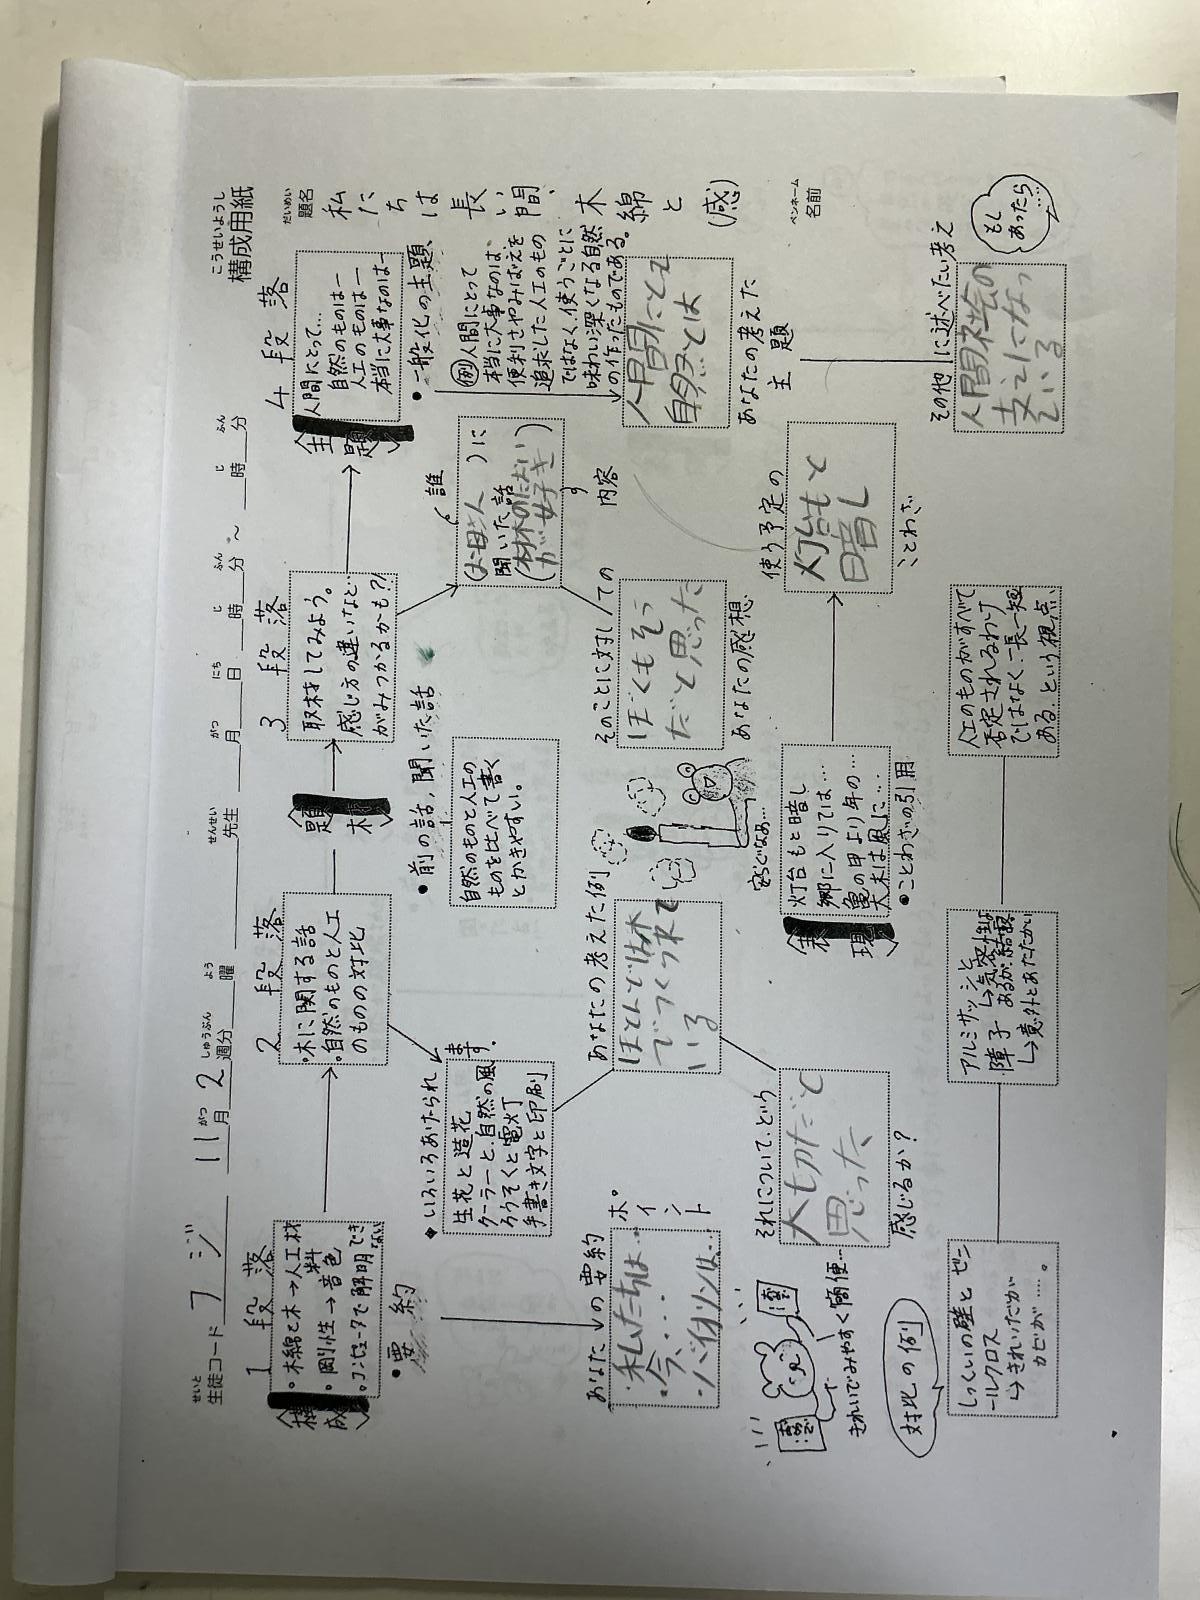 こうせいようし
構成用紙
せいと
生徒コード フジ
11月2週分
がつ
しゅうぶん
よう
曜
せんせい
先生
がつ にち じ ふん じ ふん
月 日 時 分 ～ 時 分
だいめい
題名
私たちは長い間、木綿と(感)
ペンネーム
名前
1段落
構成
・木綿と木→人工材料
・剛性→音色
・コンピュータで解明できない
・要約
あなたの要約
ポイント
・私たちは…
今、・・・
・バイオリンは…
きれいでみやすく簡便…
2段落
・木に関する話
・自然のものと人工のものの対比
◆いろいろあげられます。
生花と造花
クーラーと自然の風
ろうそくと電灯
手書き文字と印刷
あなたの考えた例
ほとんどは木でつくられている
それについて、という
大切だと思った
感じるか?
題材
3段落
取材してみよう。
感じ方の違いなどがみつかるかも?!
・前の話,聞いた話
自然のものと人工のものを比べて書くとかきやすい。
誰
(お母さん)に
聞いた話
(材木のにおいが好き)
内容
そのことに対しての
ぼくもそうだと思った
あなたの感想
表現
灯台もと暗し
郷に入りては…
亀の甲より年の…
大木は風に…
・ことわざの引用
使う予定の
灯台もと暗し
ことわざ
4段落
主題
人間にとって…
自然のものは―
人工のものは―
本当に大事なのは―
・一般化の主題
例 人間にとって
本当に大事なのは、
便利さやみばえを
追求した人工のもの
ではなく、使うごとに
味わい深くなる自然
の作ったものである。
人間にとって自然とは
あなたの考えた
主題
その他に述べたい考え
もしあったら…
人間社会の支えになっている
対比の例
しっくいの壁とビニールクロス
↳きれいだが
カビが……。
アルミサッシと障子
↳気密性はあるが、結露
↳意外とあたたかい
人工のものがすべて
否定されるわけ
ではなく、一長一短
ある、という視点、